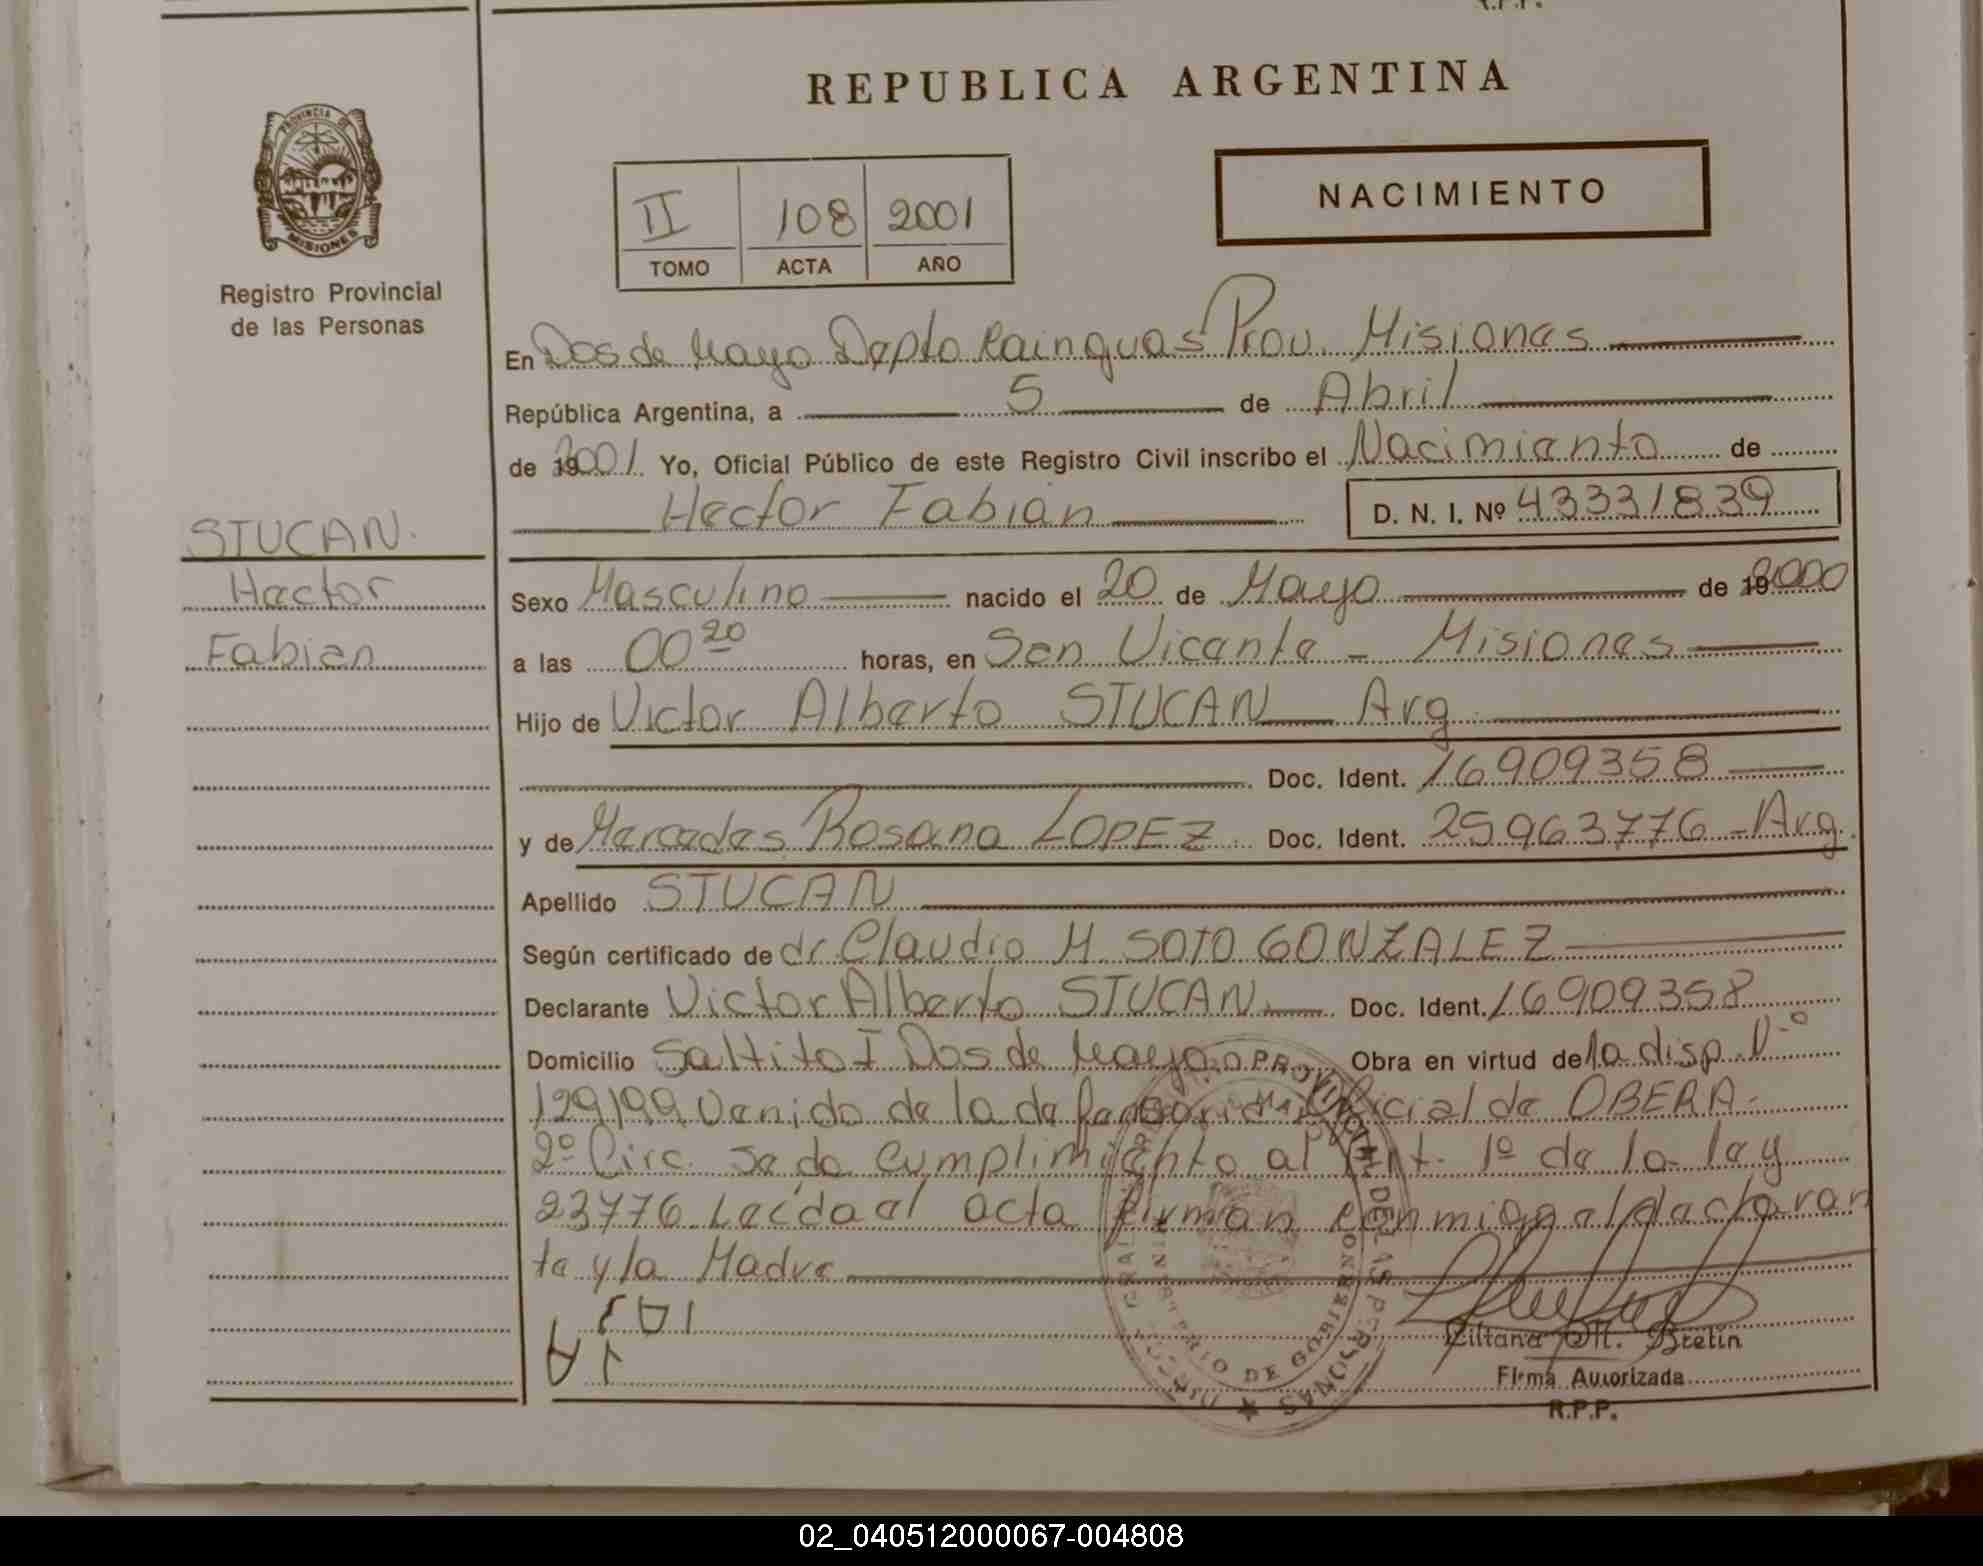 R.P.P.
REPUBLICA ARGENTINA
PROVINCIA DE
MISIONES
Registro Provincial
de las Personas
II 108 2001
TOMO ACTA AÑO
NACIMIENTO
En Dos de Mayo Depto Cainguas Prov. Misiones
República Argentina, a 5 de Abril
de 2001 Yo, Oficial Público de este Registro Civil inscribo el Nacimiento de
Hector Fabian D. N. I. Nº 43331839
STUCAN.
Hector
Fabian
Sexo Masculino nacido el 20 de Mayo de 2000
a las 00 20 horas, en San Vicente - Misiones
Hijo de Victor Alberto STUCAN Arg
Doc. Ident. 16909358
y de Mercedes Rosana LOPEZ Doc. Ident. 25963776 - Arg.
Apellido STUCAN
Según certificado de dr Claudio M. SOTO GONZALEZ
Declarante Victor Alberto STUCAN. Doc. Ident. 16909358
Domicilio Saltito I Dos de Mayo Obra en virtud de la disp. Nº
129/99 Venido de la de oficial de OBERA.
2º Circ. se da cumplimiento al Art. 1º de la ley
23776 Leída el acta firman conmigo el declaran
te y la Madre
Liliana M. Brelin
Firma Autorizada
R.P.P.
PROVINCIAL DE LAS PERSONAS
MINISTERIO DE GOBIERNO
02_040512000067-004808